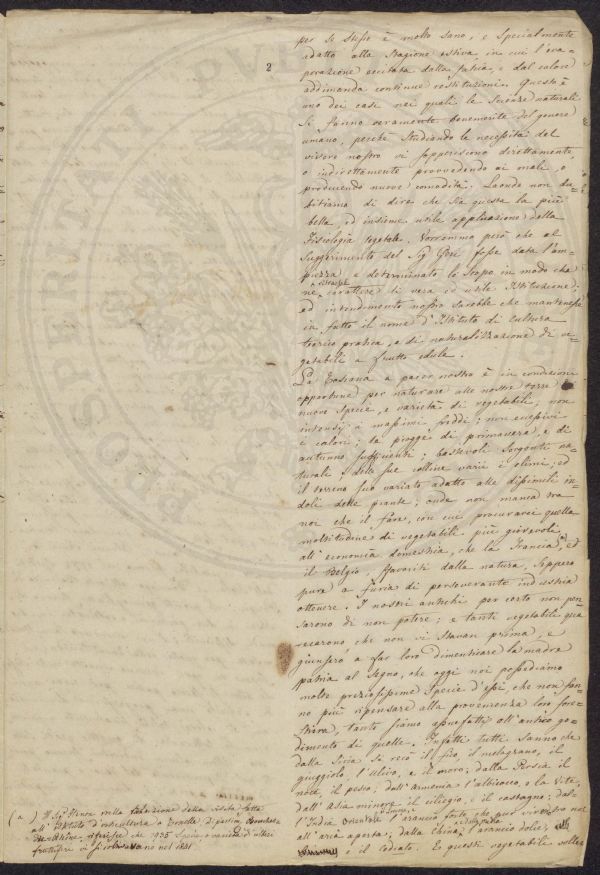 2
per se stesso è molto sano, e specialmente
adatto alla stagione estiva in cui l'eva=
porazione eccitata dalla fatica, e dal calore
addimanda continue restituzioni. Questo è
uno dei casi nei quali le Scienze naturali
si fanno veramente benemerite del genere
umano, perchè studiando le necessità del
vivere nostro vi sopperiscono direttamente,
o indirettamente provvedendo ai mali, o
producendo nuove comodità. Laonde non du=
bitiamo di dire che sia questa la più
bella ed insieme utile applicazione della
Fisiologia vegetale. Vorremmo però che al
suggerimento del Sig.
fosse data l'am=
piezza, e determinato lo scopo in modo che
ne carattere di vera ed utile Istituzione;
ed intendimento nostro sarebbe che mantenesse
in tutto il nome d'Istituto di Cultura
teorico pratica, e di naturalizzazione di ve=
getabili a frutto edule.
La Toscana a parer nostro è in condizione
opportuna per naturare alle nostre terre
nuove specie, e varietà di vegetabili; non
intensi i massimi freddi; non eccessivi
i calori; le piogge di primavera, e di
autunno sufficienti; bastevoli sorgenti na=
turali; delle sue colline varii i climi; ed
il terreno suo variato adatto alle dissimili in=
doli delle piante; onde non manca tra
noi che il fare, con cui procurarci quella
moltitudine di vegetabili più giovevoli
all'economia domestica, che la Francia, ed
il Belgio, favoriti dalla natura, seppero
pure a furia di perseverante industria
ottenere. I nostri antichi per certo non pen=
sarono di non potere; e tanti vegetabili qua
recarono che non vi stavan prima, e
giunsero a far loro dimenticare la madre
patria al segno, che oggi noi possediamo
molte preziosissime specie d'essi, che non fan=
no più ripensare alla provenienza loro fore=
stiera, tanto siamo assuefatti all'antico go=
dimento di quelle. Infatti tutti sanno che
dalla Siria si recò il fico, il melagrano, il
giuggiolo, l'ulivo, e il moro; dalla Persia il
noce, il pesco; dall'Armenia l'albicocco, e la vite;
dall'Asia minore il ciliegio, e il castagno; dal=
l'India Orientale l'arancio forte che può vivere tra noi
all'aria aperta; dalla China l'arancio dolce,
e il cedrato. E questi vegetabili
(a) Il Sig. nella relazione della visita fatta
all'Istituto d'orticultura a
riferisce che 1935 specie o varietà d'alberi
fruttiferi si coltivavano nel 1841